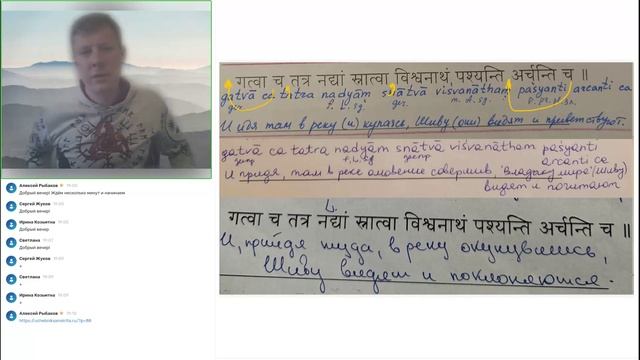 गत्वा च तत्र नद्यां स्नात्वा विश्वनाथं पश्यन्ति अर्चन्ति च ॥
gatvā ca tatra nadyām snātvā visvanātham pasyanti arcanti ca
ger. f. L. sg. ger. m. A. sg.
И идя там в реку (и) купаясь, Шиву (они) видят и приветствуют.
gatvā ca tatra nadyām snātvā viśvanātham paśyanti
arcanti ca
И придя, там в реке омовение совершив, "Владыку мира" (Шиву)
видят и почитают
L.
गत्वा च तत्र नद्यां स्नात्वा विश्वनाथं पश्यन्ति अर्चन्ति च ॥
И, придя туда, в реку окунувшись,
Шиву видят и поклоняются.
Алексей Рыбаков
Добрый вечер! Ждём несколько минут и начинаем
Сергей Жуков
Добрый вечер
Ирина Козыитна
Добрый вечер
Светлана
Добрый вечер!
Сергей Жуков
+
Светлана
+
Ирина Козыитна
+
Алексей Рыбаков